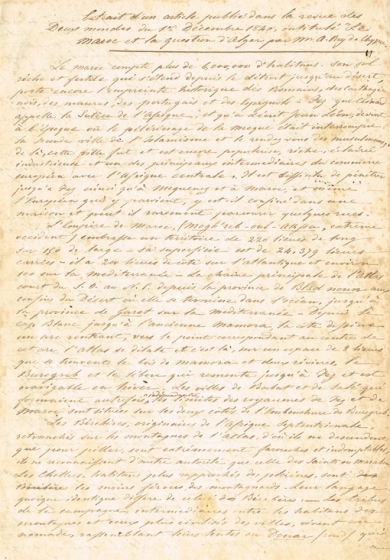 Extrait d'un article publié dans la revue des
Deux mondes du 1er Décembre 1840, intitulé Le
Maroc et la question d'Alger par mr A. Rey de
Le maroc compte plus de 6,000,000 d'habitans. Son sol
riche et fertile qui s'étend depuis le détroit jusqu'au désert,
porte encore l'empreinte historique des Romains, des carthagi-
nois, des maures, des portugais et des Espagnols. Fez que
appelle la de l'afrique, et qu'a décrit Jean Léon, devint
à l'époque où le pélerinage de la mecque était interrompu
la sainte ville de l'islamisme et le rendez-vous des musulmans,
cette ville fut et est encore populeuse, riche, éclairée
industrieuse et un des principaux intermédiaires du commerce
européen avec l'afrique centrale. Il est difficile de pénétrer
jusqu'à Fez ainsi qu'à Mequenez et à maroc et même
l'Européen qui y parvient, y est confiné dans une
maison et peut rarement parcourir quelques rues.
L'Empire de maroc, (Moghreb-oul-aqsa, extrême
occident) embrasse un territoire de 220 lieues de long
sur 150 de large. sa superficie est de 24,379 lieues
carrées - il a 200 lieues de côte sur l'atlantique et environ
100 sur la méditerranée - La chaîne principale de l'atlas
court du S.O. au N.E. depuis la province de
confins du Désert où elle se termine dans l'océan, jusqu'à
la province de Garet sur la méditerranée - depuis le
cap Blanc jusqu'à l'ancienne mamora, la côte
un arc rentrant, vers le point correspondant au centre de
cet arc l'atlas se dilate, et c'est là, sur un espace de 8 lieues
que se trouvent le bois de mamora et deux rivières, le
Buregreb et le Sebou qui remonte jusqu'à Fez et est
navigable en hiver. Les villes de Rabat et de Salé qui
formaient autrefois les limites des royaumes de Fez et de
Maroc sont situées sur les deux côtés de l'embouchure du Buregreb
Les Bérébères, originaires de l'afrique septentrionale
retranchés sur les montagnes de l'atlas d'où ils ne descendent
que pour piller, sont extrêmement farouches et indomptables
ils ne reconnaissent d'autre autorité que celle des Saints ou marabouts
Les Chellus, habitent plus au midi et policés ont
les mêmes mœurs des montagnards leur langage
quoique identique diffère de celui des Bérébères. Les tribus
de la campagne intermédiaires entre les habitans des
montagnes et ceux plus civilisés des villes, vivent en
nomades rassemblant leurs tentes en Douar (rond) qui